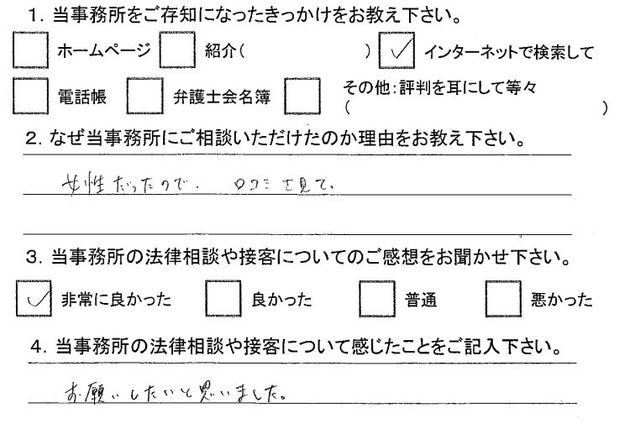 1. 当事務所をご存知になったきっかけをお教え下さい。
ホームページ 紹介( ) ✓ インターネットで検索して
電話帳 弁護士会名簿 その他:評判を耳にして等々
( )
2. なぜ当事務所にご相談いただけたのか理由をお教え下さい。
女性だったので. 口コミを見て。
3. 当事務所の法律相談や接客についてのご感想をお聞かせ下さい。
✓ 非常に良かった 良かった 普通 悪かった
4. 当事務所の法律相談や接客について感じたことをご記入下さい。
お願いしたいと思いました。